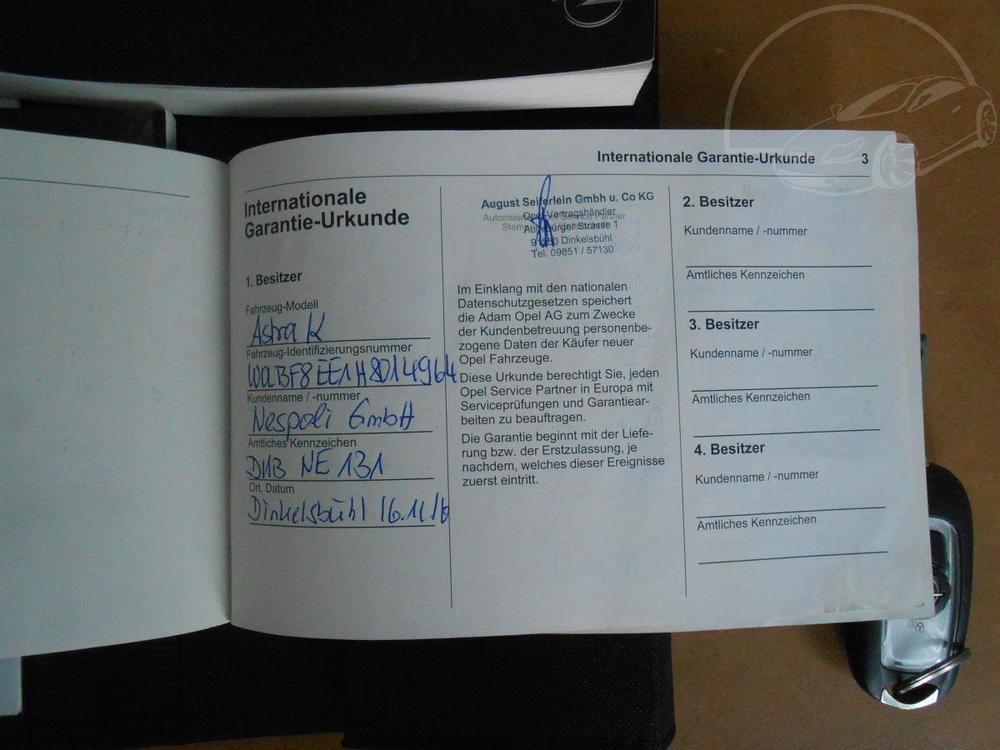 Internationale Garantie-Urkunde 3
Internationale
Garantie-Urkunde
1. Besitzer
Fahrzeug-Modell
Astra K
Fahrzeug-Identifizierungsnummer
W0LBF8EE1H8014964
Kundenname / -nummer
Nespoli GmbH
Amtliches Kennzeichen
DKB NE 131
Ort, Datum
Dinkelsbühl 16.11.16
August Seiferlein Gmbh u. Co KG
Opel Vertragshändler
Augsburger Strasse 1
Dinkelsbühl
Tel. 09851 / 57130
Im Einklang mit den nationalen
Datenschutzgesetzen speichert
die Adam Opel AG zum Zwecke
der Kundenbetreuung personenbe-
zogene Daten der Käufer neuer
Opel Fahrzeuge.
Diese Urkunde berechtigt Sie, jeden
Opel Service Partner in Europa mit
Serviceprüfungen und Garantiear-
beiten zu beauftragen.
Die Garantie beginnt mit der Liefe-
rung bzw. der Erstzulassung, je
nachdem, welches dieser Ereignisse
zuerst eintritt.
2. Besitzer
Kundenname / -nummer
Amtliches Kennzeichen
3. Besitzer
Kundenname / -nummer
Amtliches Kennzeichen
4. Besitzer
Kundenname / -nummer
Amtliches Kennzeichen